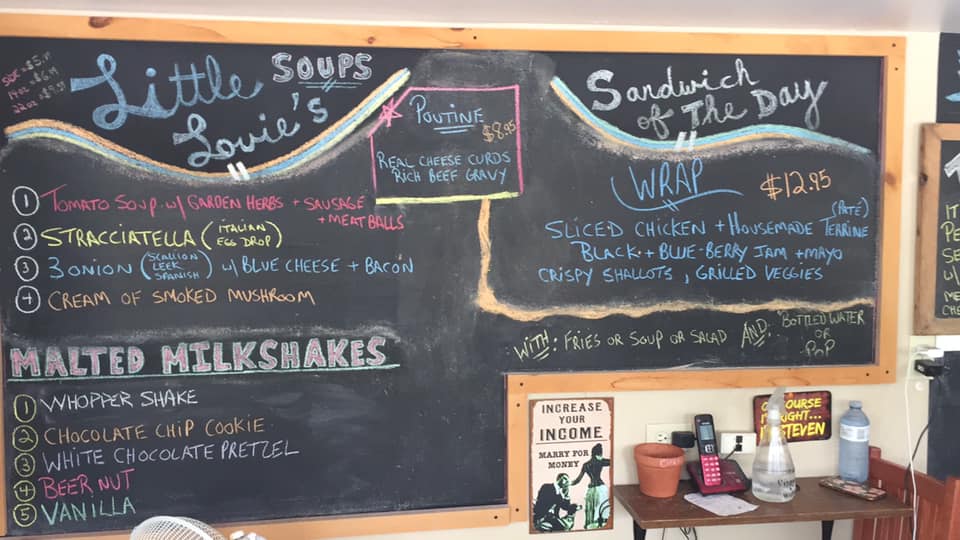 Little
Lovie's
SOUPS
8oz = $5.
14oz = $6.
22oz = $9.
POUTINE
$8.95
REAL CHEESE CURDS
RICH BEEF GRAVY
Sandwich
of The Day
WRAP $12.95
(PATÉ)
SLICED CHICKEN + HOUSEMADE TERRINE
BLACK + BLUE-BERRY JAM + MAYO
CRISPY SHALLOTS, GRILLED VEGGIES
WITH: FRIES OR SOUP OR SALAD AND: BOTTLED WATER
OR
POP
1 TOMATO SOUP W/ GARDEN HERBS + SAUSAGE
+ MEATBALLS
2 STRACCIATELLA (ITALIAN
EGG DROP)
3 3 ONION (SCALLION
LEEK
SPANISH) W/ BLUE CHEESE + BACON
4 CREAM OF SMOKED MUSHROOM
MALTED MILKSHAKES
1 WHOPPER SHAKE
2 CHOCOLATE CHIP COOKIE
3 WHITE CHOCOLATE PRETZEL
4 BEER NUT
5 VANILLA
INCREASE
YOUR
INCOME
MARRY FOR
MONEY
OF COURSE
I'M RIGHT...
I'M STEVEN